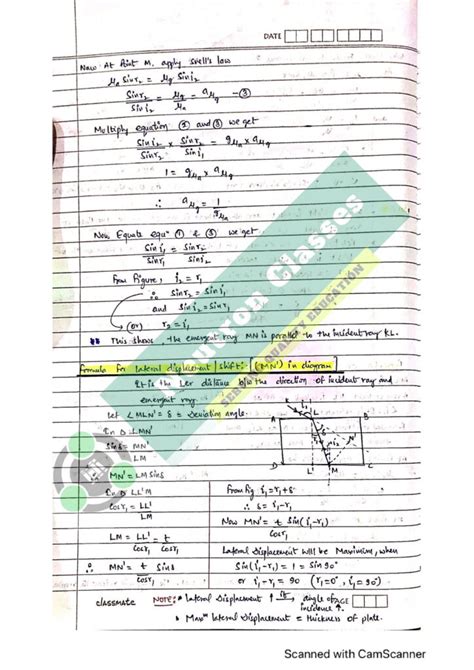 DATE
Now At Point M, apply Snell's law
μa Sinr2 = μg Sini2
Sinr2 / Sini2 = μg / μa = aμg — ③
Multiply equation ② and ③ we get
Sini2 / Sinr2 × Sinr2 / Sini1 = gμa × aμg
1 = gμa × aμg
∴ aμg = 1 / gμa
Now Equate equⁿ ① & ③ we get
Sini1 / Sinr1 = Sinr2 / Sini2
From figure, i2 = r1
∴ Sinr2 = Sini1
and Sini2 = Sinr1
(or) r2 = i1
This shows the emergent ray MN is parallel to the incident ray KL.
Formula for lateral displacement/shift: (MN') in diagram
It is the Ler distance b/w the direction of incident ray and
emergent ray.
Let ∠MLN' = δ = Deviation angle.
In Δ LMN'
Sinδ = MN' / LM
∴ MN' = LM Sinδ
In Δ LL'M
Cosr1 = LL' / LM
LM = LL' / Cosr1 = t / Cosr1
∴ MN' = t / Cosr1 Sinδ
K
A
L
B
N'
D
L'
M
C
From fig i1 = r1 + δ
∴ δ = i1 - r1
Now MN' = t / Cosr1 Sin(i1 - r1)
Lateral Displacement will be Maximum, when
Sin(i1 - r1) = 1 = Sin90°
or i1 - r1 = 90 (r1 = 0°, i1 = 90°)
classmate
NOTE: * lateral displacement ↑ if angle of incidence ↑.
PAGE
* Maxᵐ lateral Displacement = thickness of plate.
Neutron Classes
QUALITY EDUCATION
Scanned with CamScanner